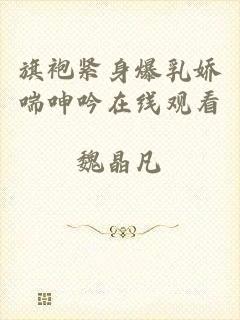 旗袍紧身爆乳娇
喘呻吟在线观看
魏晶凡